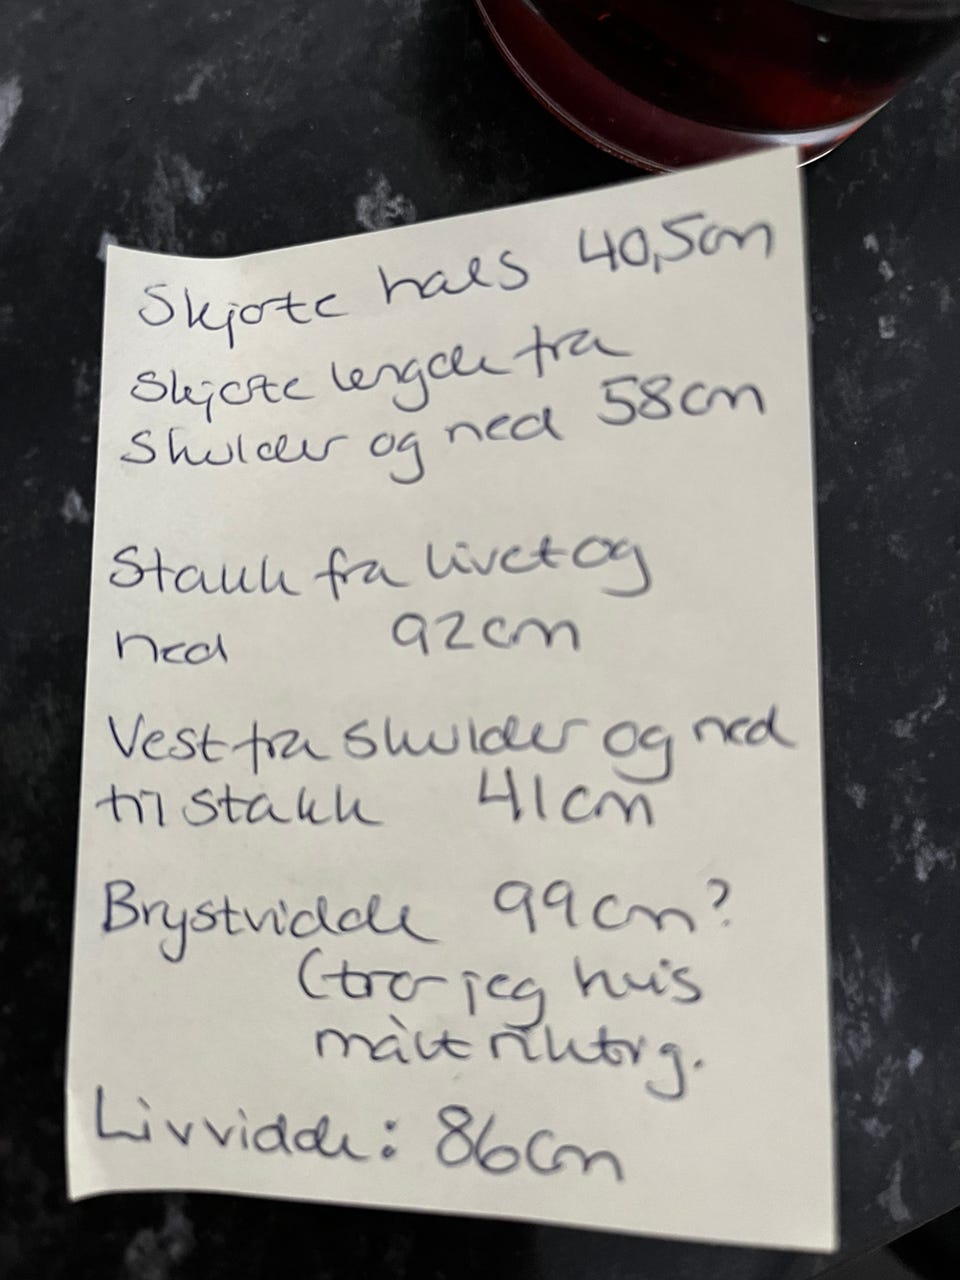 Skjorte hals 40,5cm
Skjorte lengde fra
Skulder og ned 58cm
Stakk fra livet og
ned 92cm
Vest fra skulder og ned
til stakk 41cm
Brystvidde 99cm?
(tror jeg hvis
målt riktig.
Livvidde: 86cm